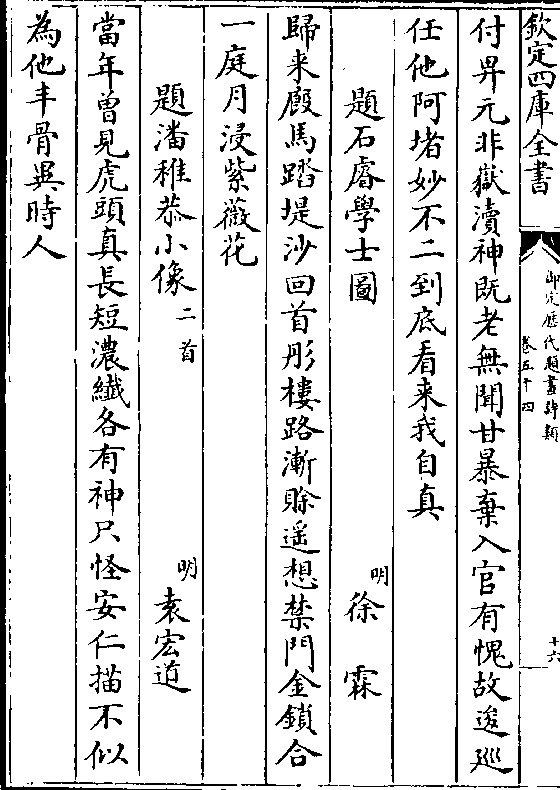 欽定四庫全書
御定歷代題畫詩類
卷五十四
十六
付畀元非嶽瀆神既老無聞甘暴棄入官有愧故逡廵
任他阿堵妙不二到底看来我自真
題石㕡學士圖 明 徐霖
歸来廐馬踏堤沙回首彤樓路漸賖遥想禁門金鎖合
一庭月浸紫薇花
題潘稚恭小像 二首 明 袁宏道
當年曽見虎頭真長短濃纎各有神只怪安仁描不似
為他丰骨異時人